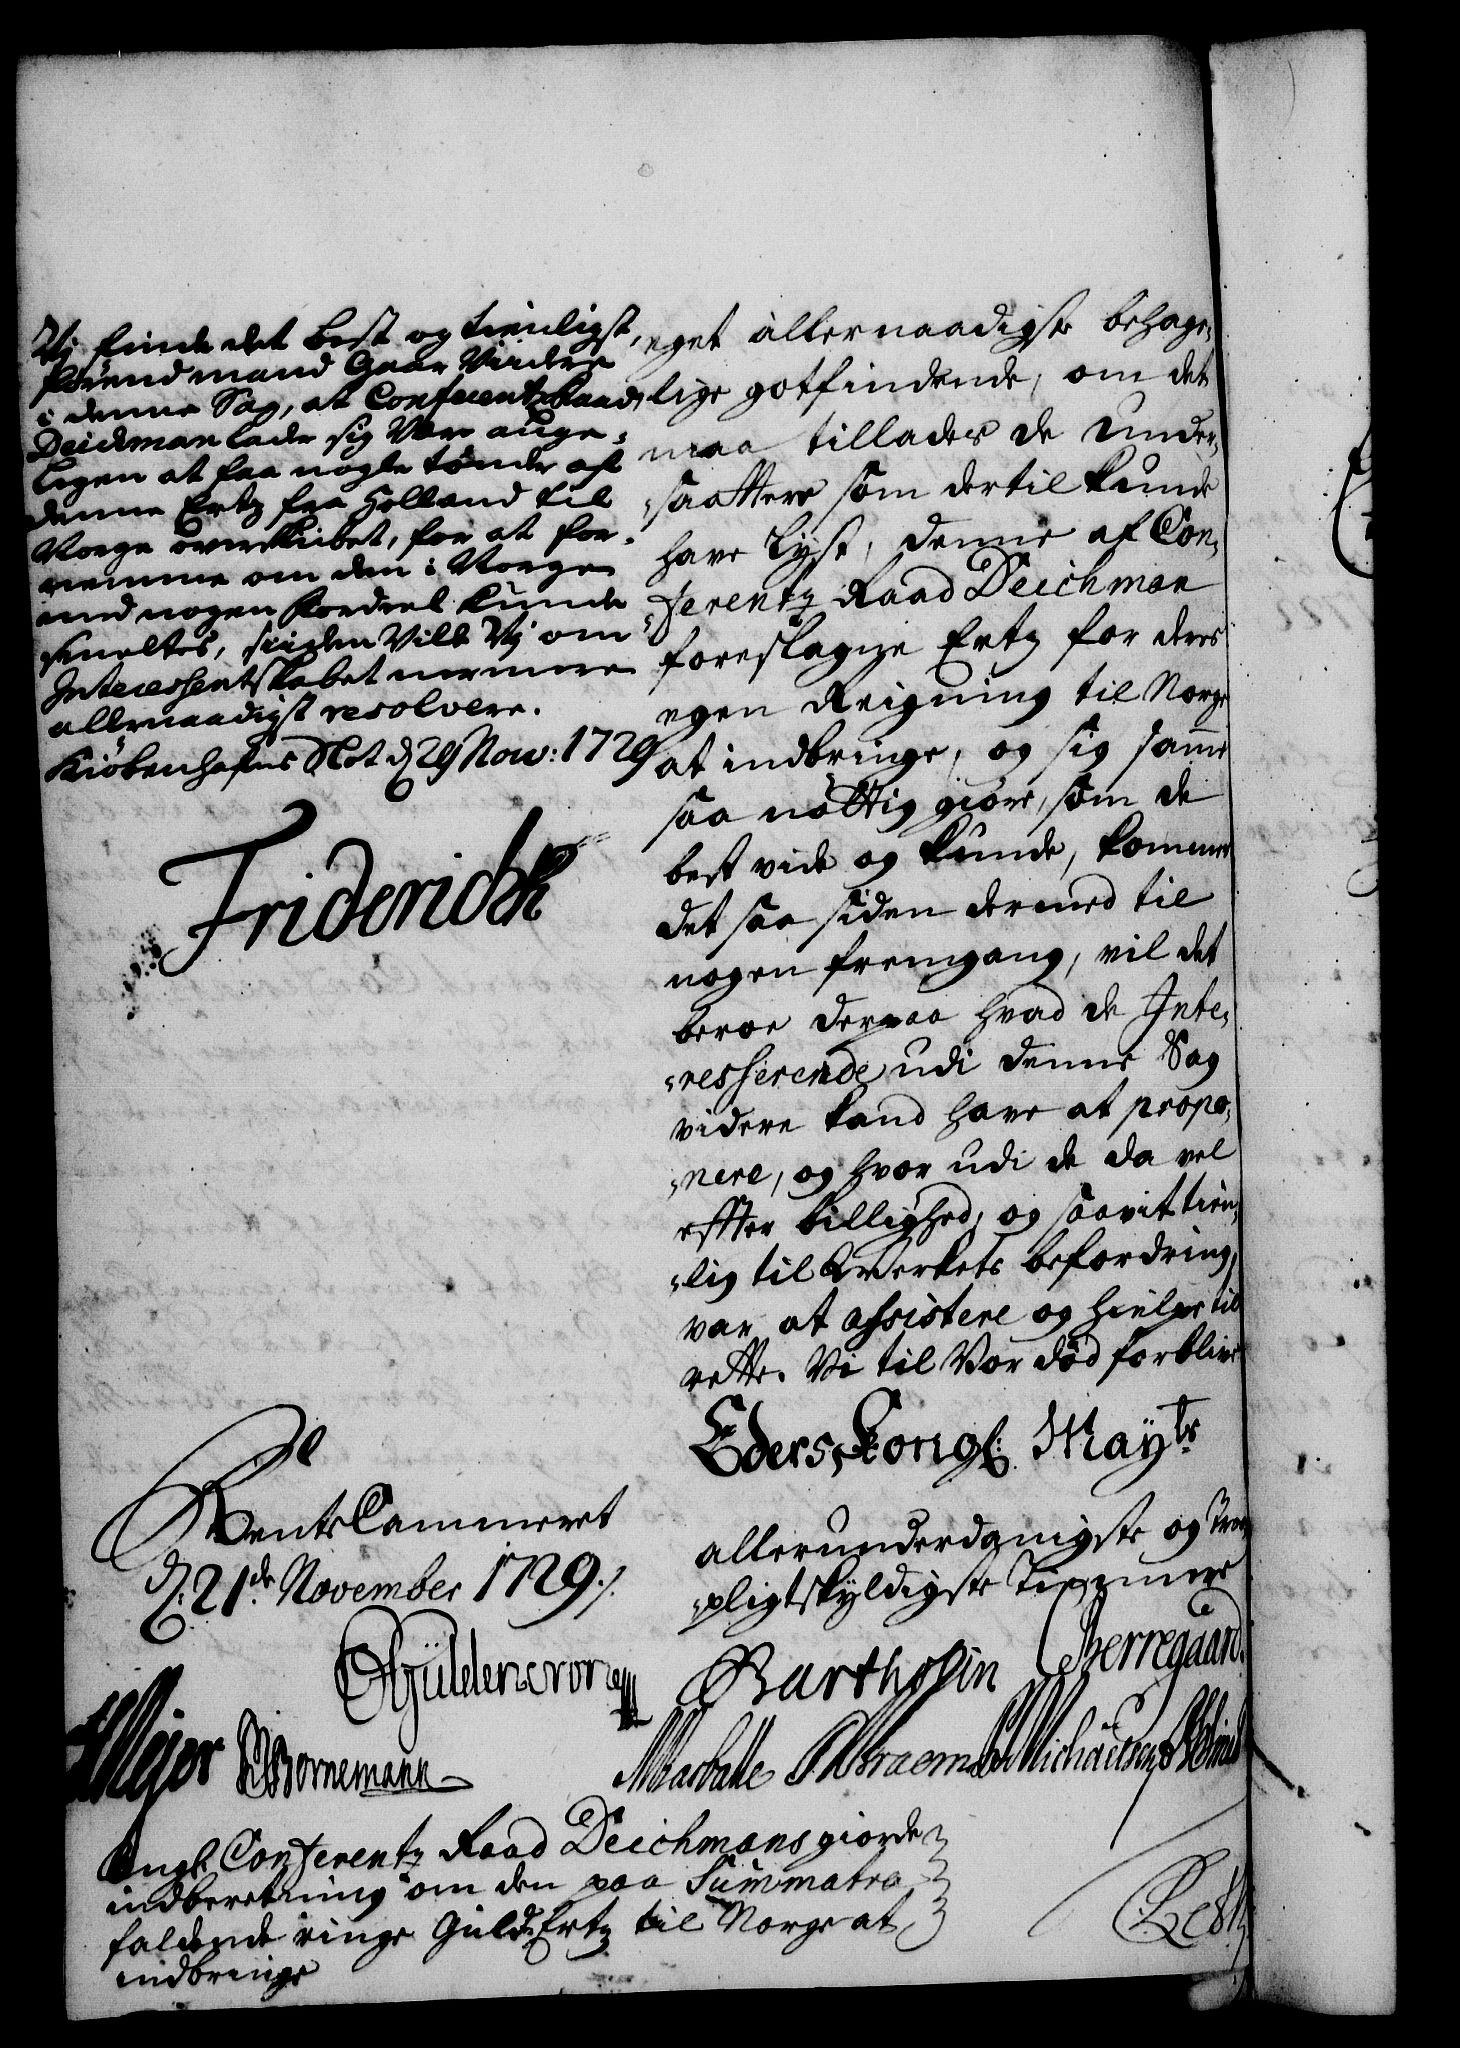 Vj finde det best og tienligst,
førend mand gaar Videre
i denne Sag, at Conferentz Raad
Deichman lade sig Være ange-
legen at faa nogle tønder af
denne Ertz fra Holland til
Norge overskibet, for at for-
nemme om den i Norge
med nogen fordeel kunde
smeltes, siden Ville Vj om
Interessentskabet nermere
allernaadigst resolvere.
Kiöbenhafns Slot d 29 Nov: 1729
Friderich R
eget allernaadigste behage,
lige gotfindende, om det
maa tillades de under,
„saattere som dertil kunde
have lyst, denne af Con,
„ferentz Raad Deichman
foreslagne Ertz for deres
egen Reigning til Norge
at indbringe, og sig samme
saa nøttig giøre, som de
best vide og kunde, kommer
det saa siden dermed til
nogen fremgang, vil det
beroe derpaa hvad de Inte,
„resserende udi denne Sag
videre kand have at propo,
„nere, og hvor udi de da vel
effter billighed, og saavit tien,
„lig til Werkets befordring,
var at assistere og hielpe til
rette. Vi til Vor død forblive
Eders Kongl: Mayts
allerunderdanigste og Troe
„pligtskyldigste Tienere
RenteCammeret
d: 21de November 1729.
Güldencrone
Bartholin
Berregaard.
Mejer
Bornemann
Kongl: Conferentz Raad Deichmans giorde
indberetning om den paa Summatra
faldende ringe Guld Ertz til Norge at
indbringe